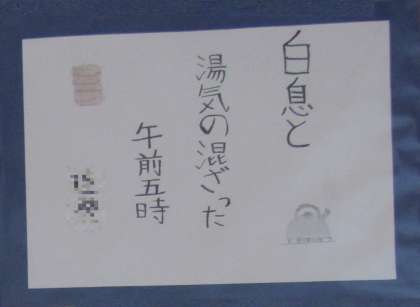 白息と
湯気の混ざった
午前五時